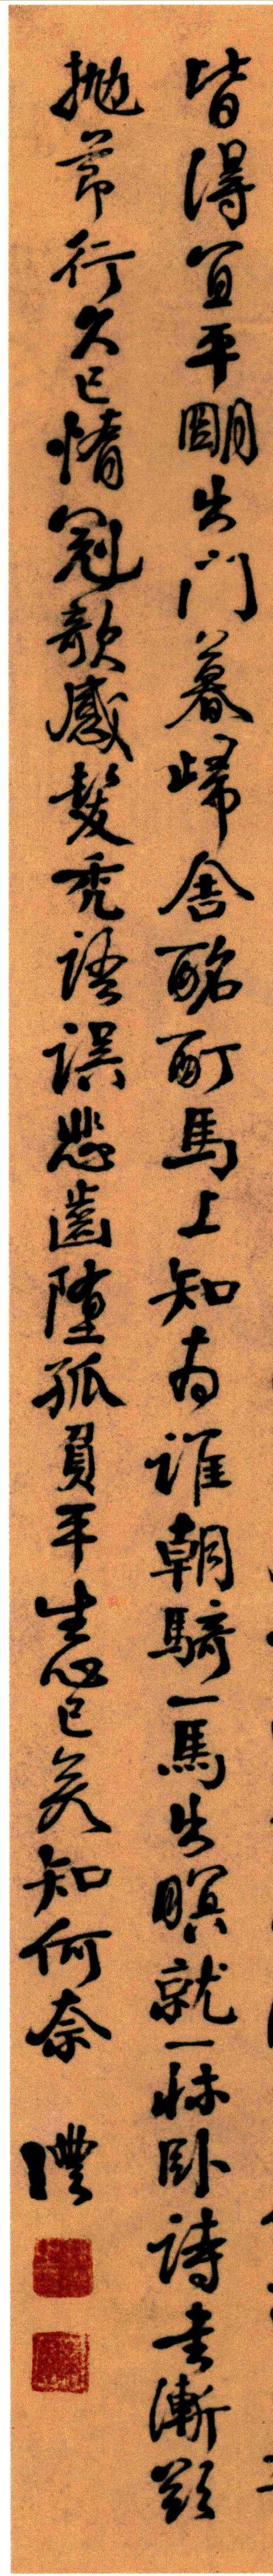 皆得宜平明出门暮歸舍酩酊馬上知為誰朝騎一馬出暝就一牀卧詩書漸欲
抛節行久已惰冠欹感髮秃語誤悲齒墮孤負平生心已矣知何奈 澧